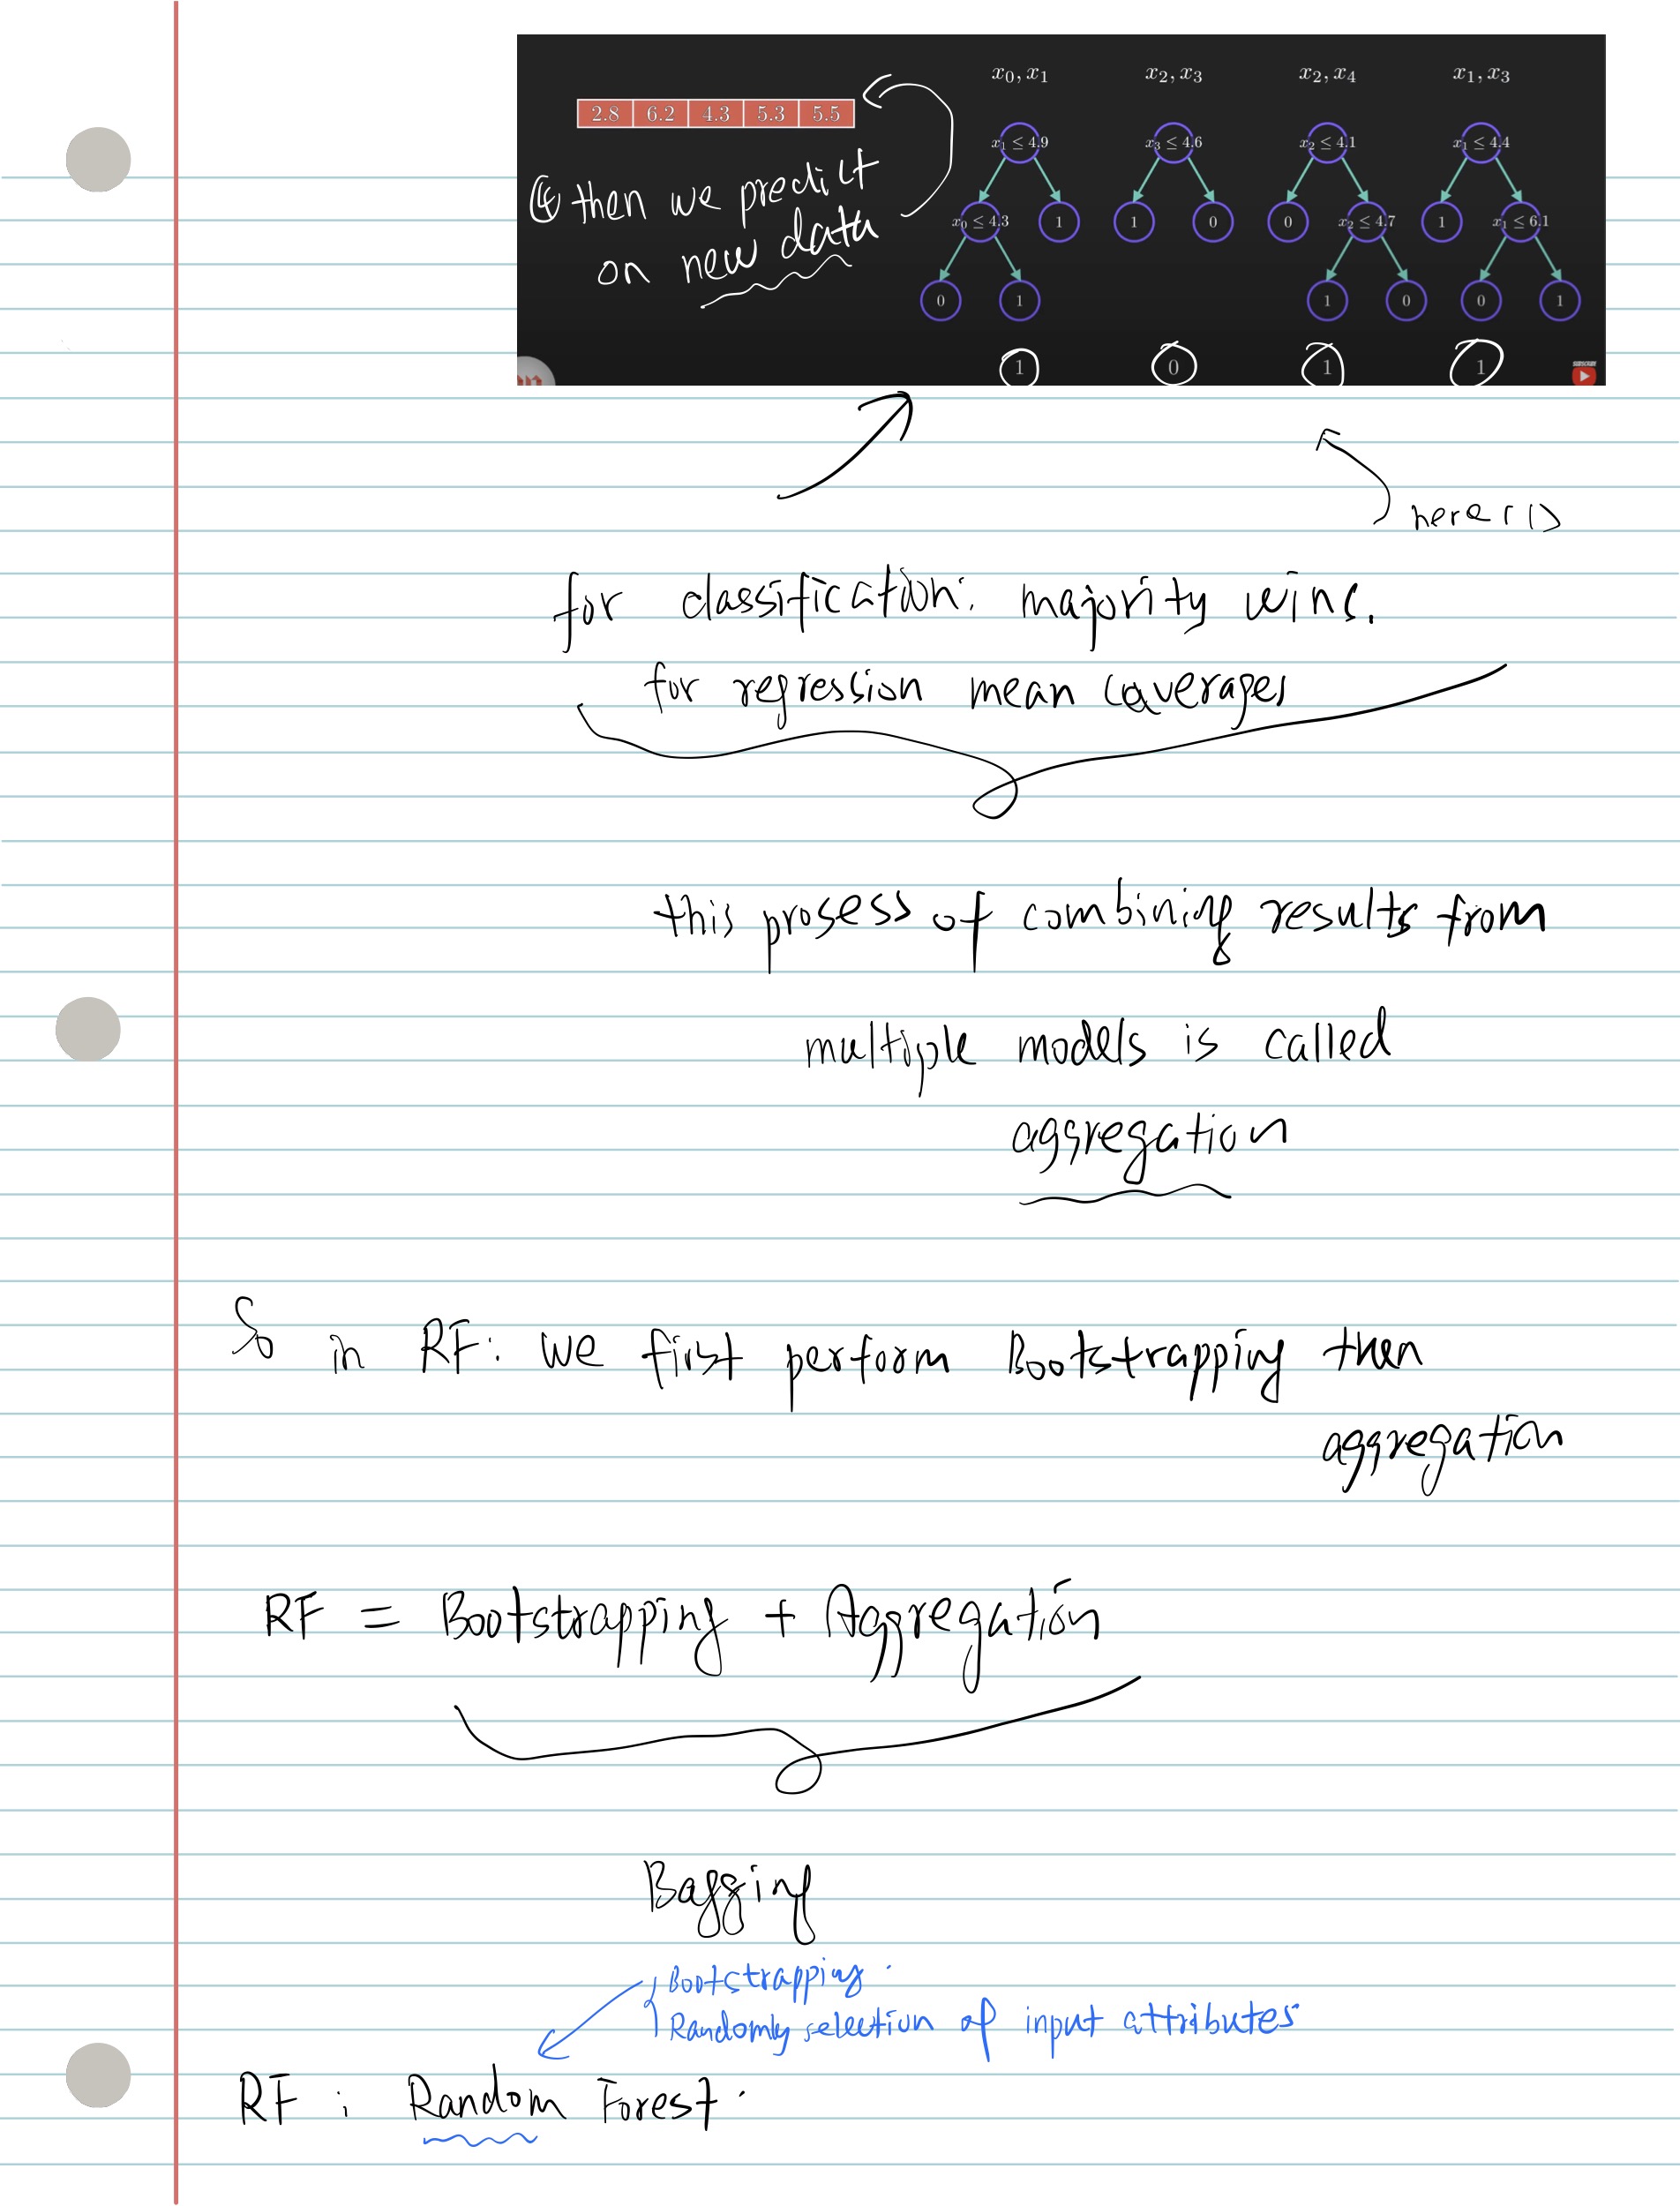 x₀, x₁
x₂, x₃
x₂, x₄
x₁, x₃
2.8 6.2 4.3 5.3 5.5
④ then we predict
on new data
x₁ ≤ 4.9
x₀ ≤ 4.3
1
0
1
1
x₃ ≤ 4.6
1
0
0
x₂ ≤ 4.1
0
x₂ ≤ 4.7
1
0
1
x₁ ≤ 4.4
1
x₁ ≤ 6.1
0
1
1
SUBSCRIBE
for classification: majority wins.
for regression mean averages
this prosess of combining results from
multiple models is called
aggregation
So in RF: we first perform Bootstrapping then
aggregation
RF = Bootstrapping + Aggregation
Bagging
Bootstrapping.
Randomly selection of input attributes
RF : Random Forest.